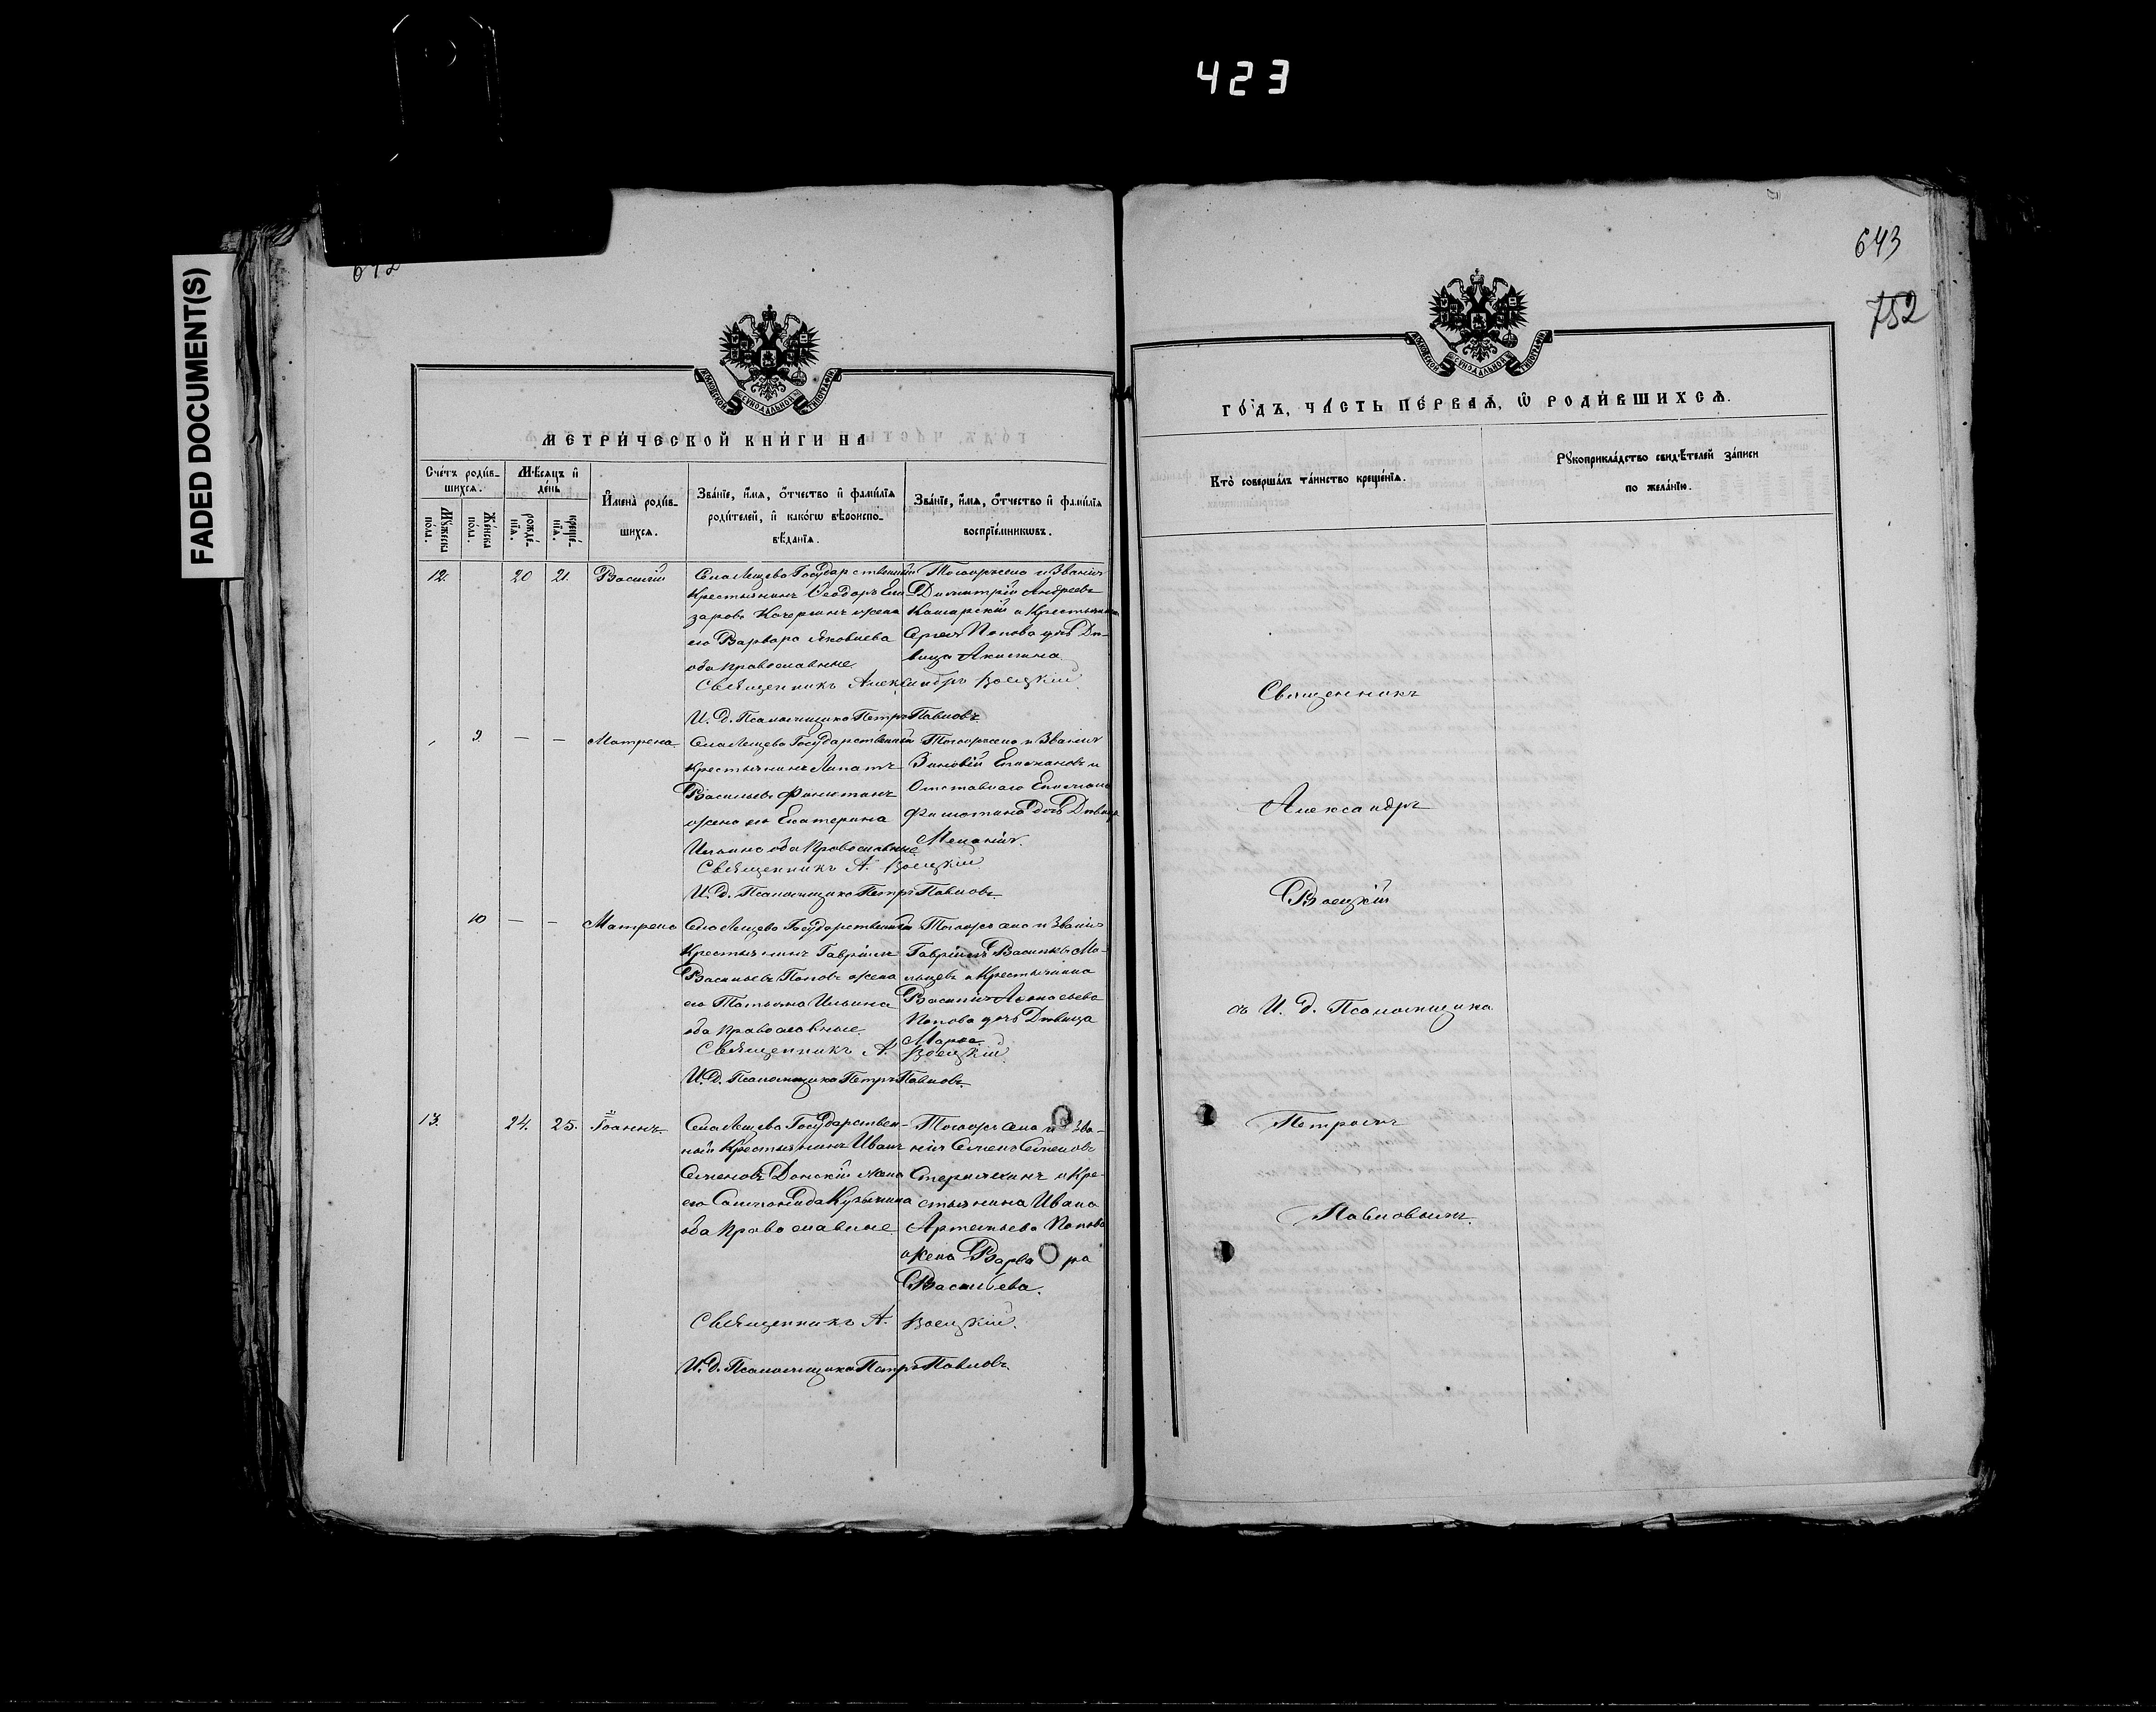 423
FADED DOCUMENT(S)
642
643
752
МОСКОВСКОЙ СѴНОДАЛЬНОЙ ТИПОГРАФІИ
МЕТРИ́ЧЕСКОЙ КНИ́ГИ НА
Сче́тъ роди́в-
шихсѧ.
Мѣ́сѧцъ и҆
де́нь
Мꙋ́жеска по́лѹ.
Же́нска по́лѹ.
рожде́-
нїѧ.
креще́-
нїѧ.
И҆мена̀ роди́в-
шихсѧ.
Зва́нїе, и҆́мѧ, ѻ҆́тчество и҆ фамѝлїѧ
роди́телей, и҆ како́гѡ вѣроисповѣ-
вѣ́данїѧ.
Зва́нїе, и҆́мѧ, ѻ҆́тчество и҆ фамѝлїѧ
воспрїе́мникѡвъ.
12. 20 21. Василій
Села Лещева Государственный
Крестьянинъ Ѳеодоръ Ели-
заровъ Кочергинъ и жена
его Варвара Яковлева
оба православные.
Тогоже села и званія
Димитрій Андреевъ
и Крестьянина
Сергея Попова дочь Дѣ-
вица Акилина.
Священникъ Александръ Воецкій
И. д. Псаломщика Петръ Павловъ.
9 — — Матрена.
Села Лещева Государственный
Крестьянинъ Ипатъ
Васильевъ
жена его Екатерина
Ильина оба Православные
Тогоже села и Званія
Зиновій и
Отставнаго
дочь Дѣвица
Меланія.
Священникъ А. Воецкій
И. д. Псаломщика Петръ Павловъ.
10 — — Матрена
Села Лещева Государственный
Крестьянинъ Гавріилъ
Васильевъ Поповъ жена
его Татьяна Ильина
оба православные.
Тогоже села и Званія
Гавріилъ Васильевъ Ма-
льцевъ и Крестьянина
Василія
Попова дочь Дѣвица
Марѳа.
Священникъ А. Воецкій.
И. д. Псаломщика Петръ Павловъ.
13. 24. 25. Іоаннъ.
Села Лещева Государствен-
ный Крестьянинъ Иванъ
Семеновъ Донскій жена
его Соломонида Кузьмина
оба Православные.
Тогоже села и Зва-
нія Семенъ Семеновъ
и Кре-
стьянина Ивана
Артемьева Попова
жена Варвара
Васильева.
Священникъ А. Воецкій.
И. д. Псаломщика Петръ Павловъ.
МОСКОВСКОЙ СѴНОДАЛЬНОЙ ТИПОГРАФІИ
ГО́ДЪ, ЧА́СТЬ ПЕ́РВАѦ, Ѡ҆ РОДИ́ВШИХСѦ.
Кто̀ соверша́лъ та́инство креще́нїѧ.
Рꙋкоприкла́дство свидѣ́телей за́писи
по жела́нїю.
Священникъ
Александръ
Воецкій
съ И. д. Псаломщика
Петромъ
Павловымъ.